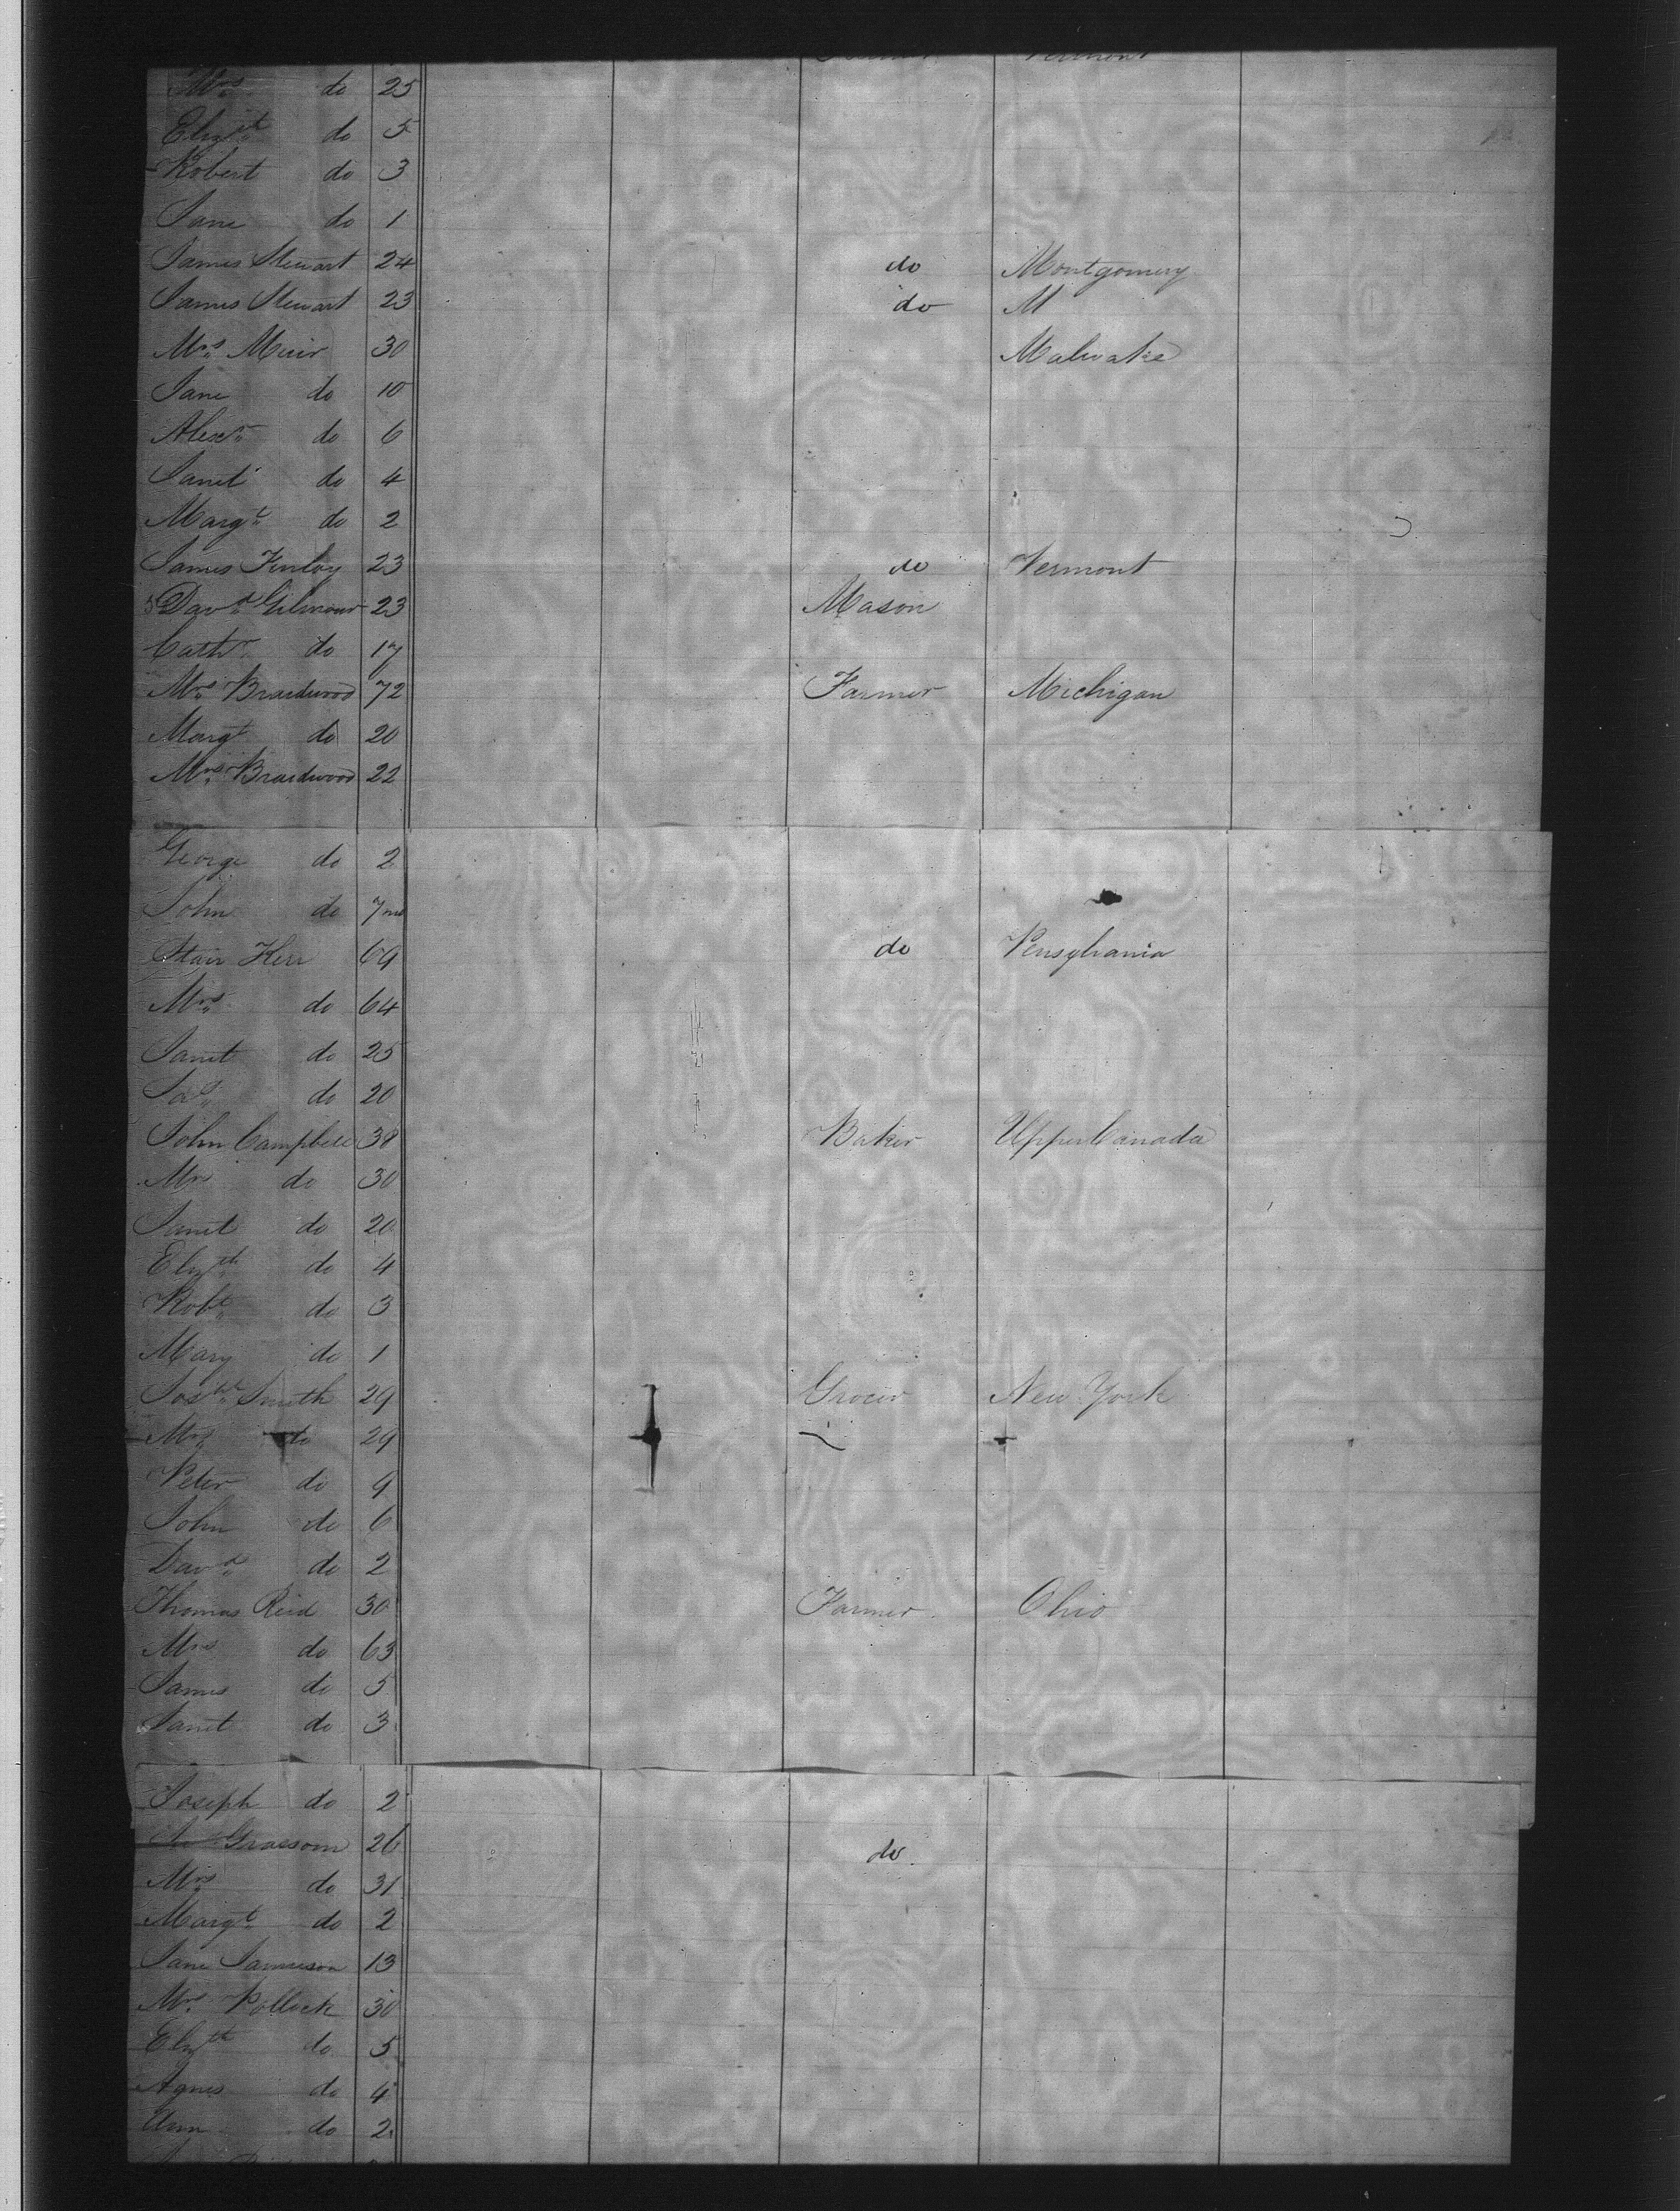 Vermont
Mrs do 25
Elizth do 5
Robert do 3
Jane do 1
James Stewart 24 do Montgomery
James Stewart 23 do M
Mrs Muir 30 Malwake
Jane do 10
Alexr do 6
Janet do 4
Margt do 2
James Finlay 23 do Vermont
Davd Gilmour 23 Mason
Cathr do 17
Mrs Braidwood 72 Farmer Michigan
Margt do 20
Mrs Braidwood 22
George do 2
John do 7 mo
Stair Kerr 69 do Pensylvania
Mrs do 64
Janet do 25
do 20
John Campbell 38 Baker Upper Canada
Mrs do 30
Janet do 20
Elizth do 4
Robt do 3
Mary do 1
Josph Smith 29 Grocer New York
Mrs do 29
Peter do 9
John do 6
Davd do 2
Thomas Reid 30 Farmer Ohio
Mrs do 63
James do 5
Janet do 3
Joseph do 2
Graesom 26 do
Mrs do 31
Margt do 2
Jane Jamieson 13
Mrs Pollock 30
Elizth do 5
Agnes do 4
Ann do 2